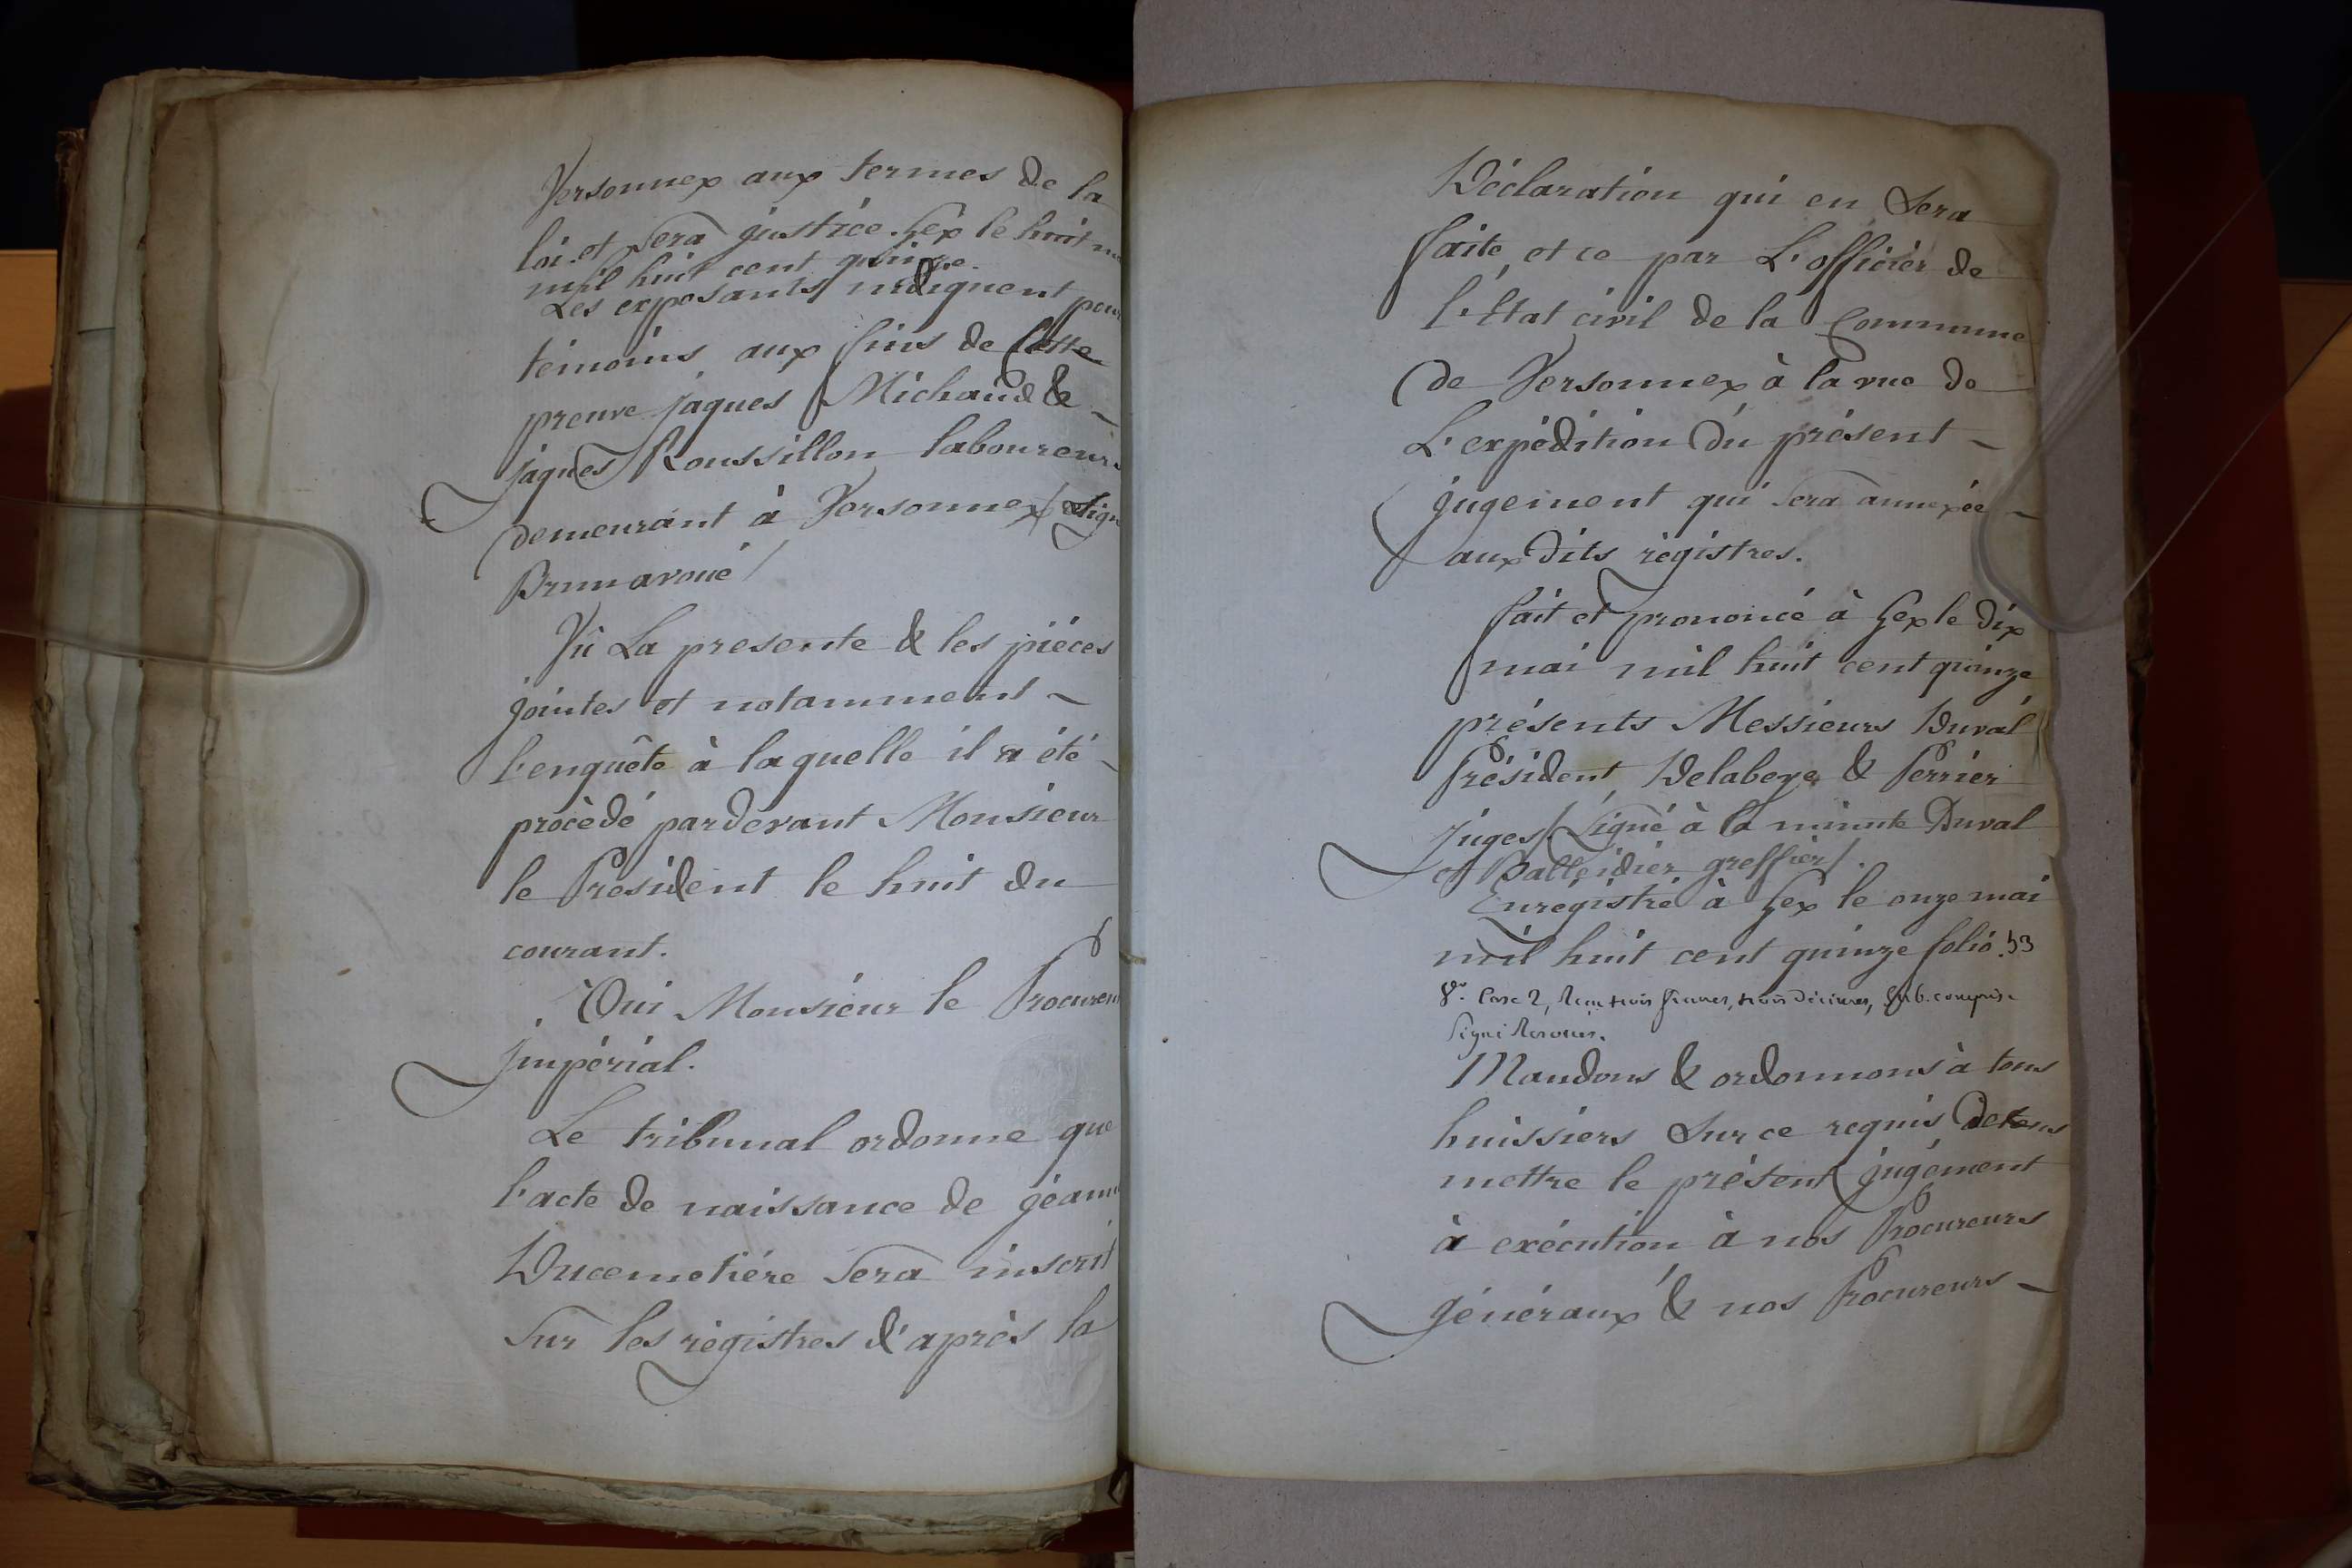 Versonnex aux termes de la
loi et sera justice. Gex le huit m
mil huit cent quinze.
Les exposants indiquent pour
témoins aux fins de Cette
preuve jaques Michaud &
jaques Roussillon laboureurs
demeurant à Versonnex/ Signé
Brun avoué/
Vû La presente & les piéces
jointes et notamment
l'enquête à laquelle il a été
procèdé pardevant Monsieur
le Président le huit du
courant.
Oui Monsieur le Procureur
jmpérial.
Le tribunal ordonne que
l'acte de naissance de jéanne
Ducemetiére sera inscrit
Sur les régistres d'après la
Déclaration qui en Sera
faite, et ce par L'officier de
l'Etat civil de la Commune
de Versonnex à la vue de
L'expédition du présent
jugement qui sera annexée
aux dits régistres.
fait et prononcé à Gex le dix
mai mil huit cent quinze
présents Messieurs Duval
Président, Delabeye & Perrier
juges/. Signé à la minute Duval
et greffier/.
Enregistré à Gex le onze mai
mil huit cent quinze folio. 53
Vo. Case 2, Reçu trois francs, trois décimes, Sub. comprise
Signé
Mandons & ordonnons à tous
huissiers Sur ce requis de
mettre le présent jugement
à exécution à nos Procureurs
généraux & nos Procureurs